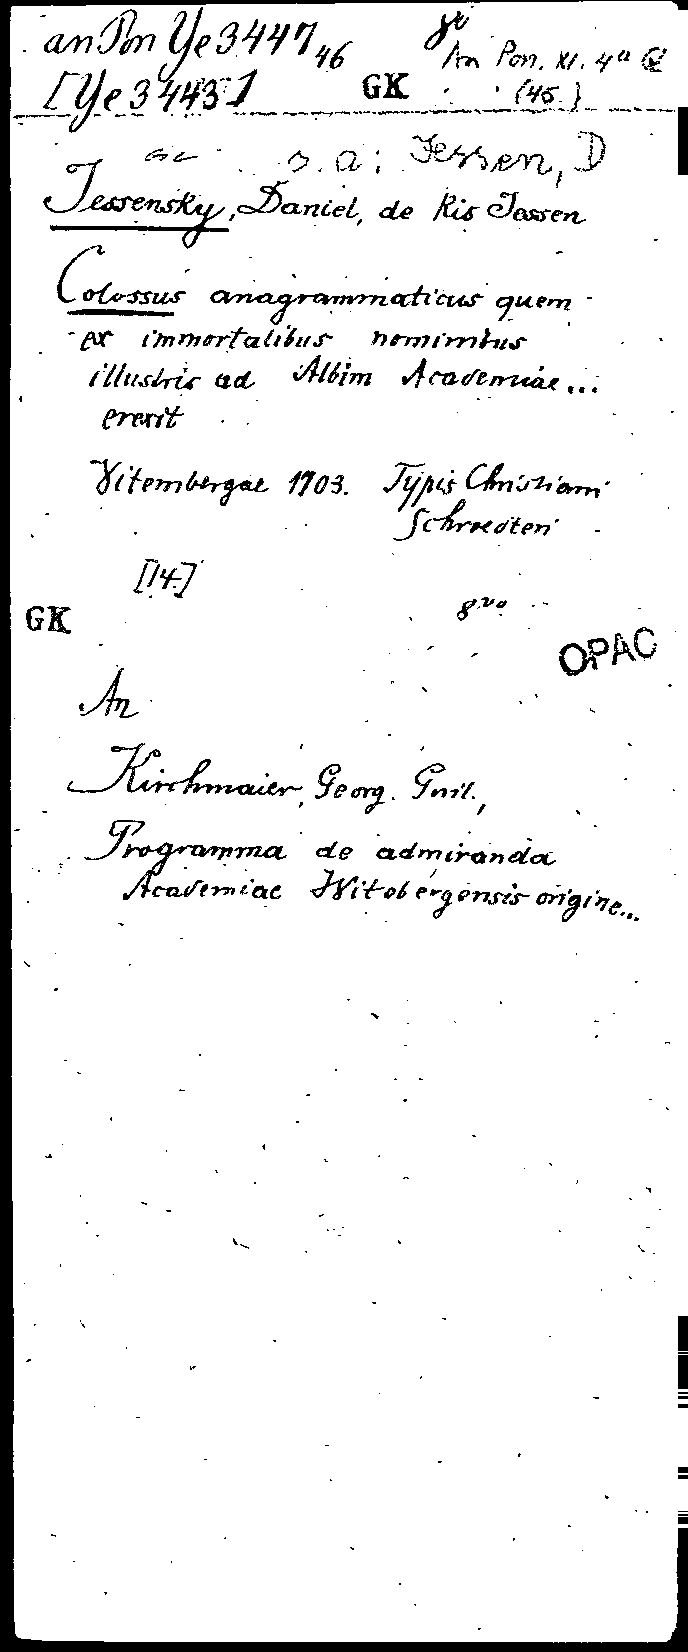 an Pon Ye 3447, 46
An Pon. XI. 4a
[Ye 3443]
GK
(45.)
s. a. : Jessen, D
Jessensky, Daniel, de Kis Jessen
Colossus anagrammaticus quem
ex immortalibus nominibus
illustris ad Albim Academiae...
erexit
Vitembergae 1703. Typis Christiani
Schroedteri
[14.]
GK
8vo
OPAC
An
Kirchmaier, Georg. Guil.,
Programma de admiranda
Academiae Witebergensis origine...